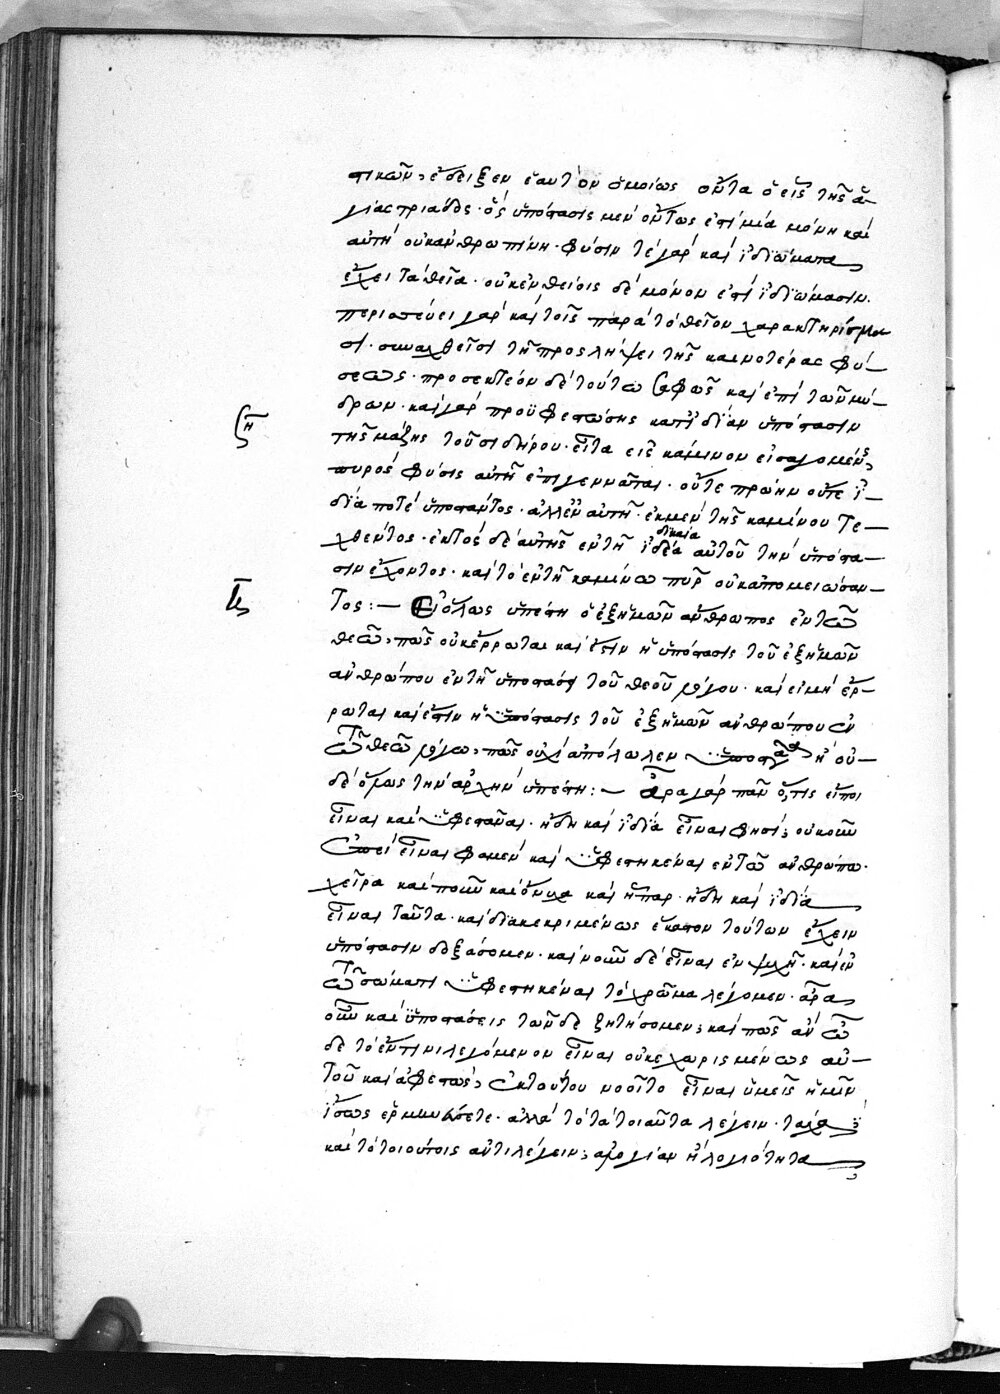 στικῶν, ἔδειξεν ἑαυτὸν ὁμοίως ὄντα ὁ εἷς τῆς ἁ-
γίας τριάδος· ὃς ὑπόστασις μὲν ὄντως ἐστὶ μία μόνη καὶ
αὐτὴ οὐκ ἀνθρωπίνη· φύσιν τὲ γὰρ καὶ ἰδιώματα
ἔχει τὰ θεῖα· οὐκ ἐν θείοις δὲ μόνον ἐστὶ ἰδιώμασιν.
περισσεύει γὰρ καὶ τοῖς παρὰ τὸ θεῖον χαρακτηρίσμα
σι· συναχθεῖσι τῇ προσλήψει τῆς καινοτέρας φύ-
σεως· προσεκτέον δὲ τούτω σαφῶς καὶ ἐπὶ τῶν μύ-
δρων· καὶ γὰρ προϋφεστώσης κατ' ἰδίαν ὑπόστασιν
ζη
τῆς μάζης τοῦ σιδήρου· εἶτα εἰς κάμινον εἰσαγομένης,
πυρὸς φύσις αὐτῇ ἐπιγεννᾶται· οὔτε πρώην οὔτε ἰ-
δία ποτὲ ὑποστάντος· ἀλλ' ἐν αὐτῇ· ἐκ μὲν τῆς καμίνου τε-
χθέντος· ἐκτὸς δὲ αὐτῆς ἐν τῇ ἰδέα αὐτοῦ τὴν ὑπόστα-
σιν ἔχοντος· καὶ τὸ ἐν τῇ καμίνω πῦρ οὐκ ἀπομειώσαν-
τος:— Εἰ ὅλως ὑπέστη ὁ ἐξ ἡμῶν ἄνθρωπος ἐν τῶ
θεῶ, πῶς οὐκ ἔρρωται καὶ ἔστιν ἡ ὑπόστασις τοῦ ἐξ ἡμῶν
ἀνθρώπου ἐν τῇ ὑποστάσει τοῦ θεοῦ λόγου· καὶ εἰ μὴ ἔρ-
ρωται καὶ ἔστιν ἡ ὑπόστασις τοῦ ἐξ ἡμῶν ἀνθρώπου ἐν
τῶ θεῶ λόγω, πῶς οὐχὶ ἀπόλωλεν ὑποστᾶσα ἢ οὐ-
δὲ ὅμως τὴν ἀρχὴν ὑπέστη:— Ἆρα γὰρ πᾶν ὅ,τις εἴποι
εἶναι καὶ ὑφεστάναι· ἤδη καὶ ἰδία εἶναι φησί; οὐκοῦν
ἐπεὶ εἶναι φαμὲν καὶ ὑφεστηκέναι ἐν τῶ ἀνθρώπω·
χεῖρα καὶ ποῦν καὶ ὄνυχα καὶ ἧπαρ· ἤδη καὶ ἰδία
εἶναι ταῦτα· καὶ διακεκριμένως ἕκαστον τούτων ἔχειν
ὑπόστασιν δοξάσομεν· καὶ νοῦν δὲ εἶναι ἐν ψυχῇ· καὶ ἐν
τῶ σώματι ὑφεστηκέναι τὸ χρῶμα λέγομεν· ἆρα
οὖν καὶ ὑποστάσεις τῶνδε ζητήσομεν; καὶ πῶς ἂν τῶ
δὲ τὸ ἔν τινι λεγόμενον εἶναι οὐ κεχωρισμένως αὐ-
τοῦ καὶ ἀφεστὼς, ἐκ τούτου νοοῖτο εἶναι ὑμεῖς ἡμῖν
ἴσως ἑρμηνεύσετε· ἀλλὰ τὸ τὰ τοιαῦτα λέγειν· τάχα δὲ
καὶ τὸ τοιούτοις ἀντιλέγειν; ἀργίαν ἢ λογιότητα